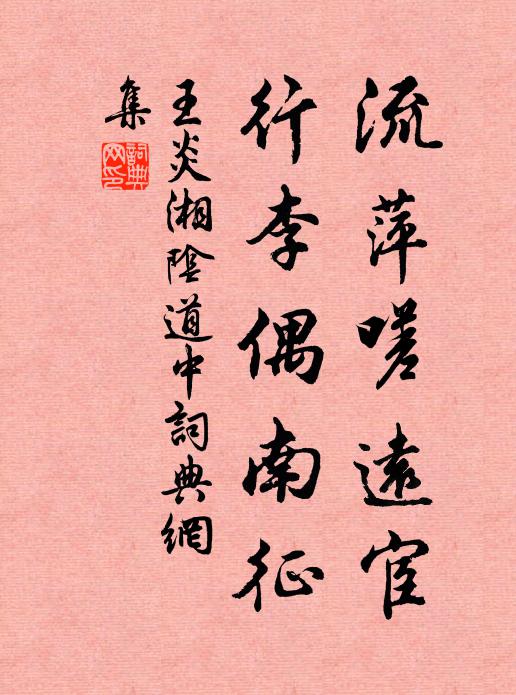 流萍嗟遠宦
行李偶南征
王炎湘陰道中詞典網
集
詞典網印